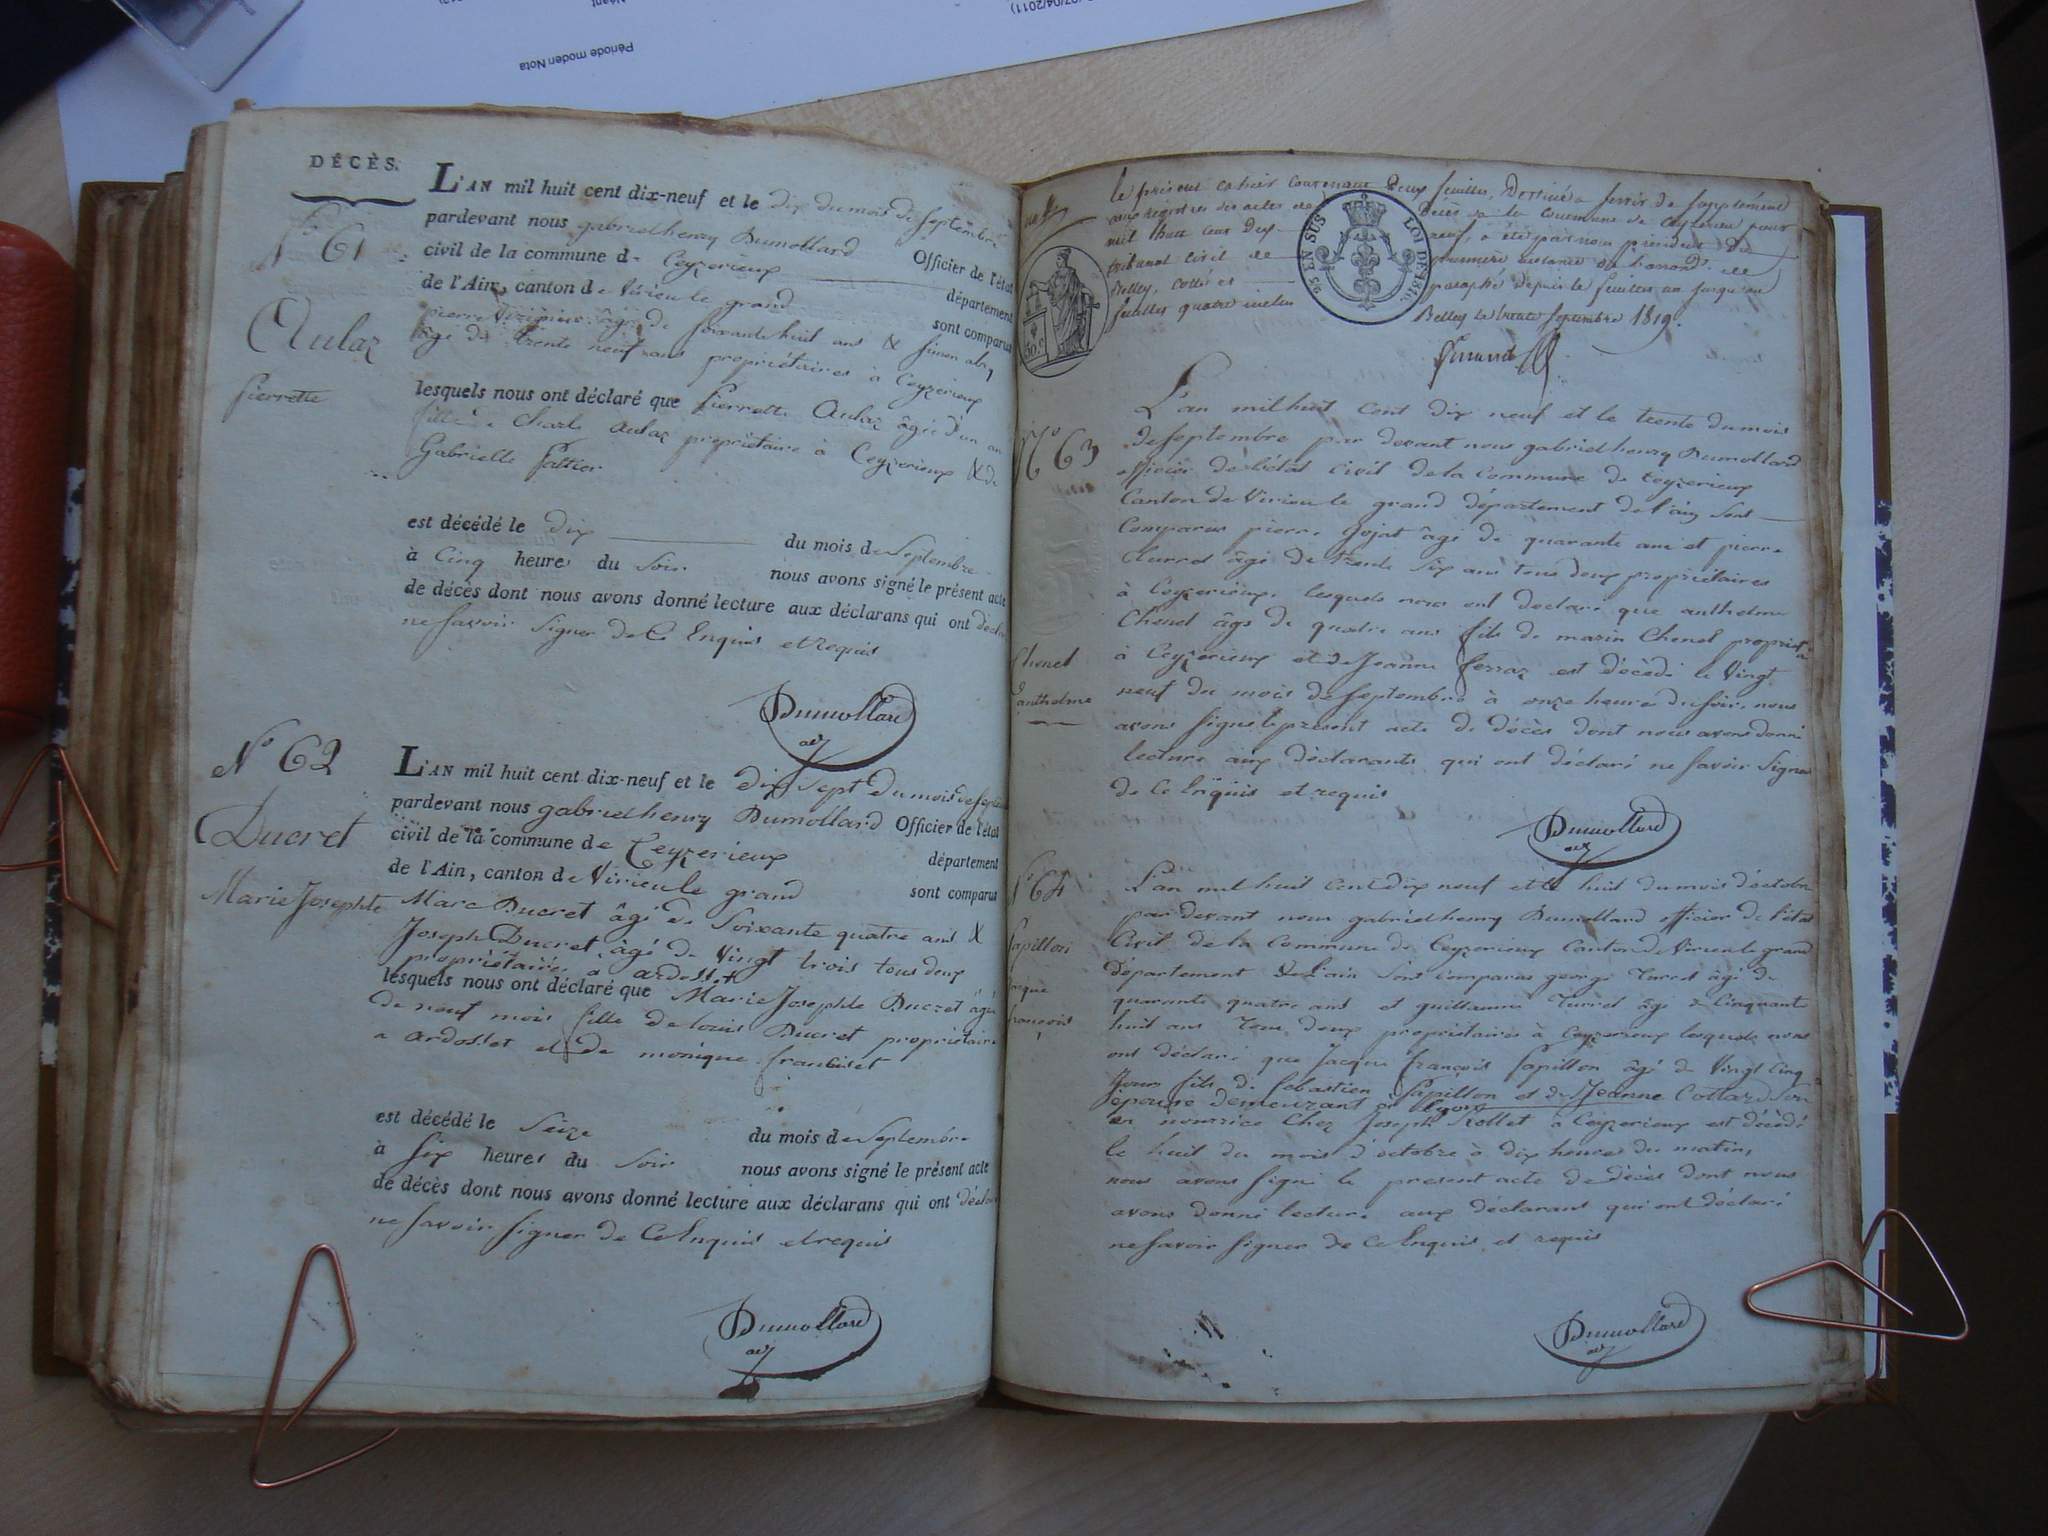 Période moder Nota
Néant
07/04/2011)
DÉCÈS.
N° 61
Aulaz
pierrette
L'AN mil huit cent dix-neuf et le dix du mois de septembre
pardevant nous gabriel henry Dumollard Officier de l'état
civil de la commune de Ceyzerieux département
de l'Ain, canton de Virieu le grand sont comparus
pierre âgé de soixante huit ans & simon
âgé de trente neuf ans propriétaires à Ceyzerieux
lesquels nous ont déclaré que pierrette Aulaz âgée d'un an
fille à Charle aulaz propriétaire à Ceyzerieux & de
Gabrielle
est décédé le dix du mois de Septembre
à Cinq heures du soir nous avons signé le présent acte
de décès dont nous avons donné lecture aux déclarans qui ont déclaré
ne savoir signer de Ce Enquis et requis
Dumollard
adj
N° 62
Ducret
Marie Josephte
L'AN mil huit cent dix-neuf et le dix sept du mois de septembre
pardevant nous gabriel henry Dumollard Officier de l'état
civil de la commune de Ceyzerieux département
de l'Ain, canton de Virieu le grand sont comparus
Marc Ducret âgé de Soixante quatre ans &
Joseph Ducret âgé de Vingt trois tous deux
propriétaires a ardosset
lesquels nous ont déclaré que Marie Josephte Ducret âgée
de neuf mois fille de louis Ducret propriétaire
a ardosset et de monique francillet
est décédé le Seize du mois de Septembre
à six heures du soir nous avons signé le présent acte
de décès dont nous avons donné lecture aux déclarans qui ont déclaré
ne savoir signer de Ce Enquis et requis
Dumollard
adj
le présent cahier contenant deux feuilles, Destiné a servir de supplément
aux registres des actes de Décès de la commune de Ceyzerieu pour
mil huit cent dix neuf, a été par nous président du
tribunal civil de première instance de l'arrond.t de
Belley, cotté et paraphé depuis le feuillet un jusqu'au
feuillet quatre inclus Belley le trente Septembre 1819.
25 EN SUS
LOI DE 1816
50 c
N° 63
Chenel
anthelme
L'an mil huit cent dix neuf et le trente du mois
de septembre par devant nous gabriel henry Dumollard
officier de l'état civil de la Commune de Ceyzerieux
Canton de Virieu le grand département de l'ain sont
Comparus pierre gojat âgé de quarante ans et pierre
âgé de trente six ans tous deux propriétaires
à Ceyzerieux, lesquels nous ont déclaré que anthelme
Chenel âgé de quatre ans fils de marin Chenel propriét.e
à Ceyzerieux et de Jeanne ferraz est décédé le Vingt
neuf du mois de septembre à onze heure du soir, nous
avons signé le present acte de décès dont nous avons donné
lecture aux déclarants qui ont déclaré ne savoir signer
de Ce Enquis et requis
Dumollard
adj
N° 64
Papillon
Jacque
francois
L'an mil huit cent dix neuf et le huit du mois d'octobre
par devant nous gabriel henry Dumollard officier de l'état
Civil de la Commune de Ceyzerieux Canton de Virieu le grand
département de l'ain sont comparus george Turrel âgé de
quarante quatre ans et guillaume Turrel âgé de Cinquante
huit ans Tous deux propriétaires à Ceyzerieux lesquels nous
ont déclaré que Jacque françois papillon âgé de Vingt Cinq
Jours fils de Sebastien Papillon et de Jeanne Collard son
epouse demeurant a lyon
en nourrice Chez Joseph Rollet à Ceyzerieux est décédé
le huit du mois d'octobre à dix heures du matin,
nous avons signé le present acte de Décès dont nous
avons donné lecture aux déclarant qui ont déclaré
ne savoir signer de Ce Enquis et requis
Dumollard
adj